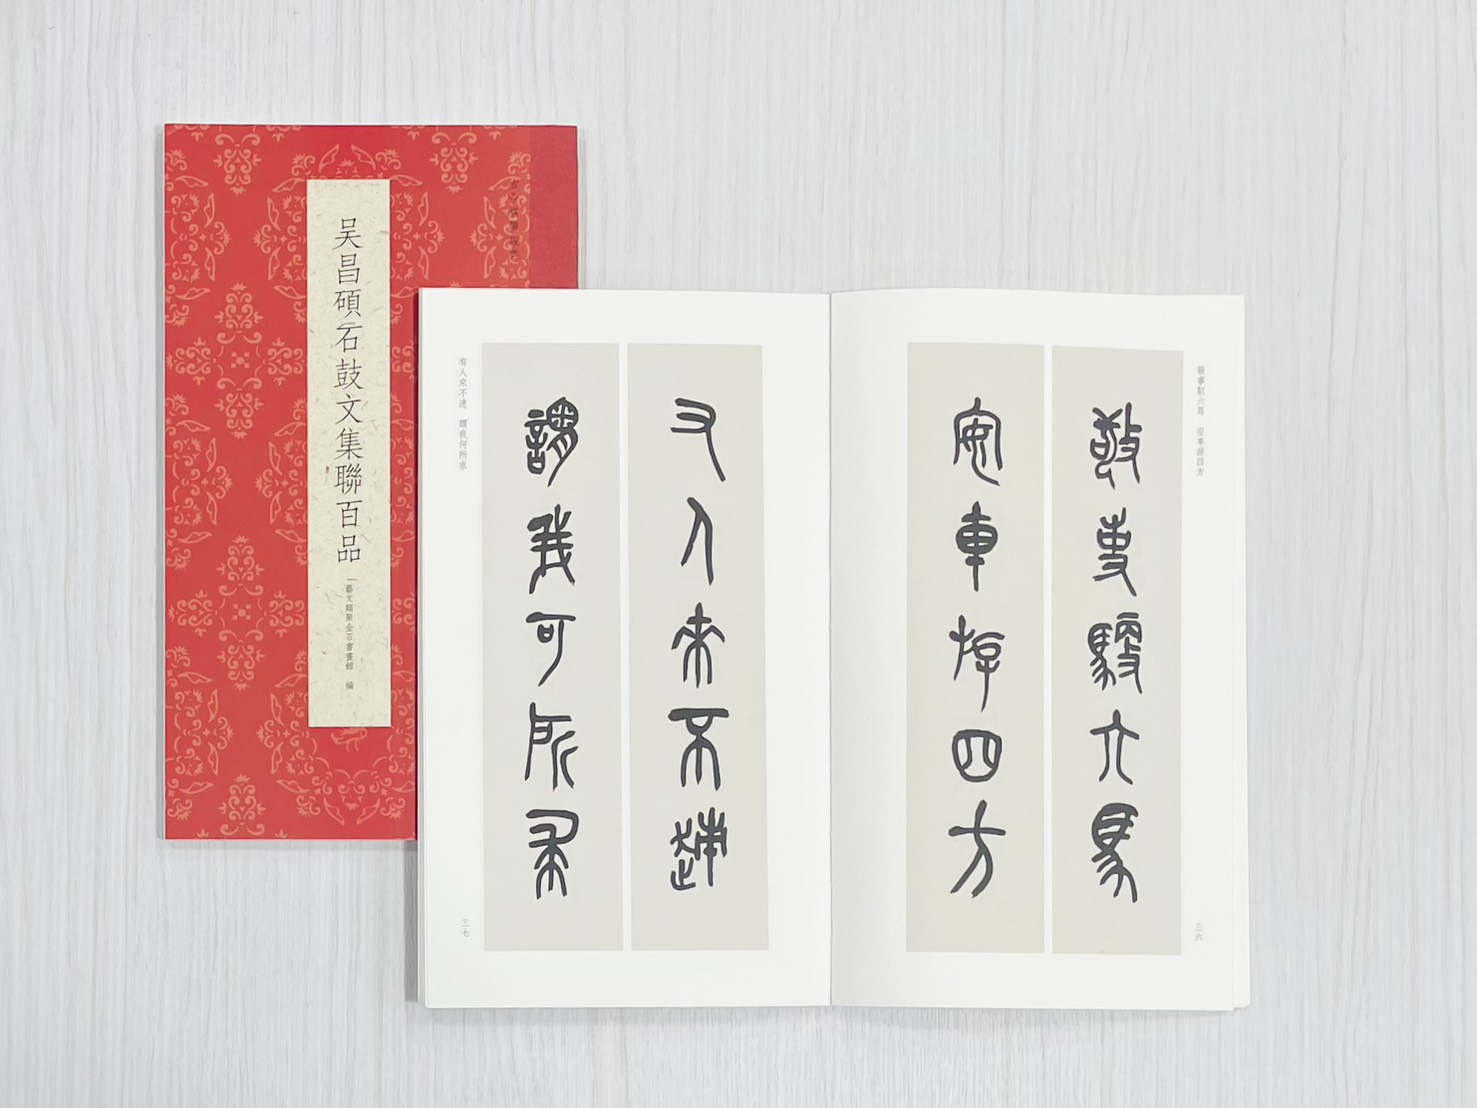 吴昌碩石鼓文集聯百品
藝文類聚金石書畫館 編
敬事馭六馬 安車游四方
敬事馭六馬
安車游四方
三六
又人來不速
謂我可所求
有人來不速 謂我何所求
三七